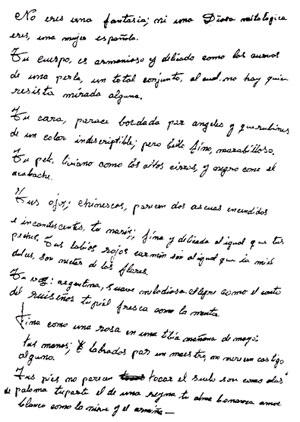 No eres una fantasia; ni una Diosa mitologica
eres, una mujer española.
Tu cuerpo, es armonioso y delicado como los
de una perla, un total conjunto, al cual no hay quien
resista mirada alguna.
Tu cara, parece bordada por angeles y querubines
de un color indescriptible; pero bello fino, marabilloso.
Tu pelo liviano como los altos cirros, y negro como el
acabache.
Tus ojos; chinescos, parecen dos ascuas encendidas
e incandescentes, tu nariz; fina y delicada al igual que tus
Tus labios rojos carmin son al igual que la miel
dulces, son nectar de las flores.
Tu voz; argentina, suave melodiosa alegre como el canto
del ruiseñor tu piel fresca como la menta.
fina como una rosa en una tibia mañana de mayo;
tus manos; labradas por un maestro, no merecen castigo
alguno.
Tus pies no parecen tocar el suelo son como alas
de paloma tu porte el de una reyna tu alma bonanza amor
blanco como la nieve y el armiño—